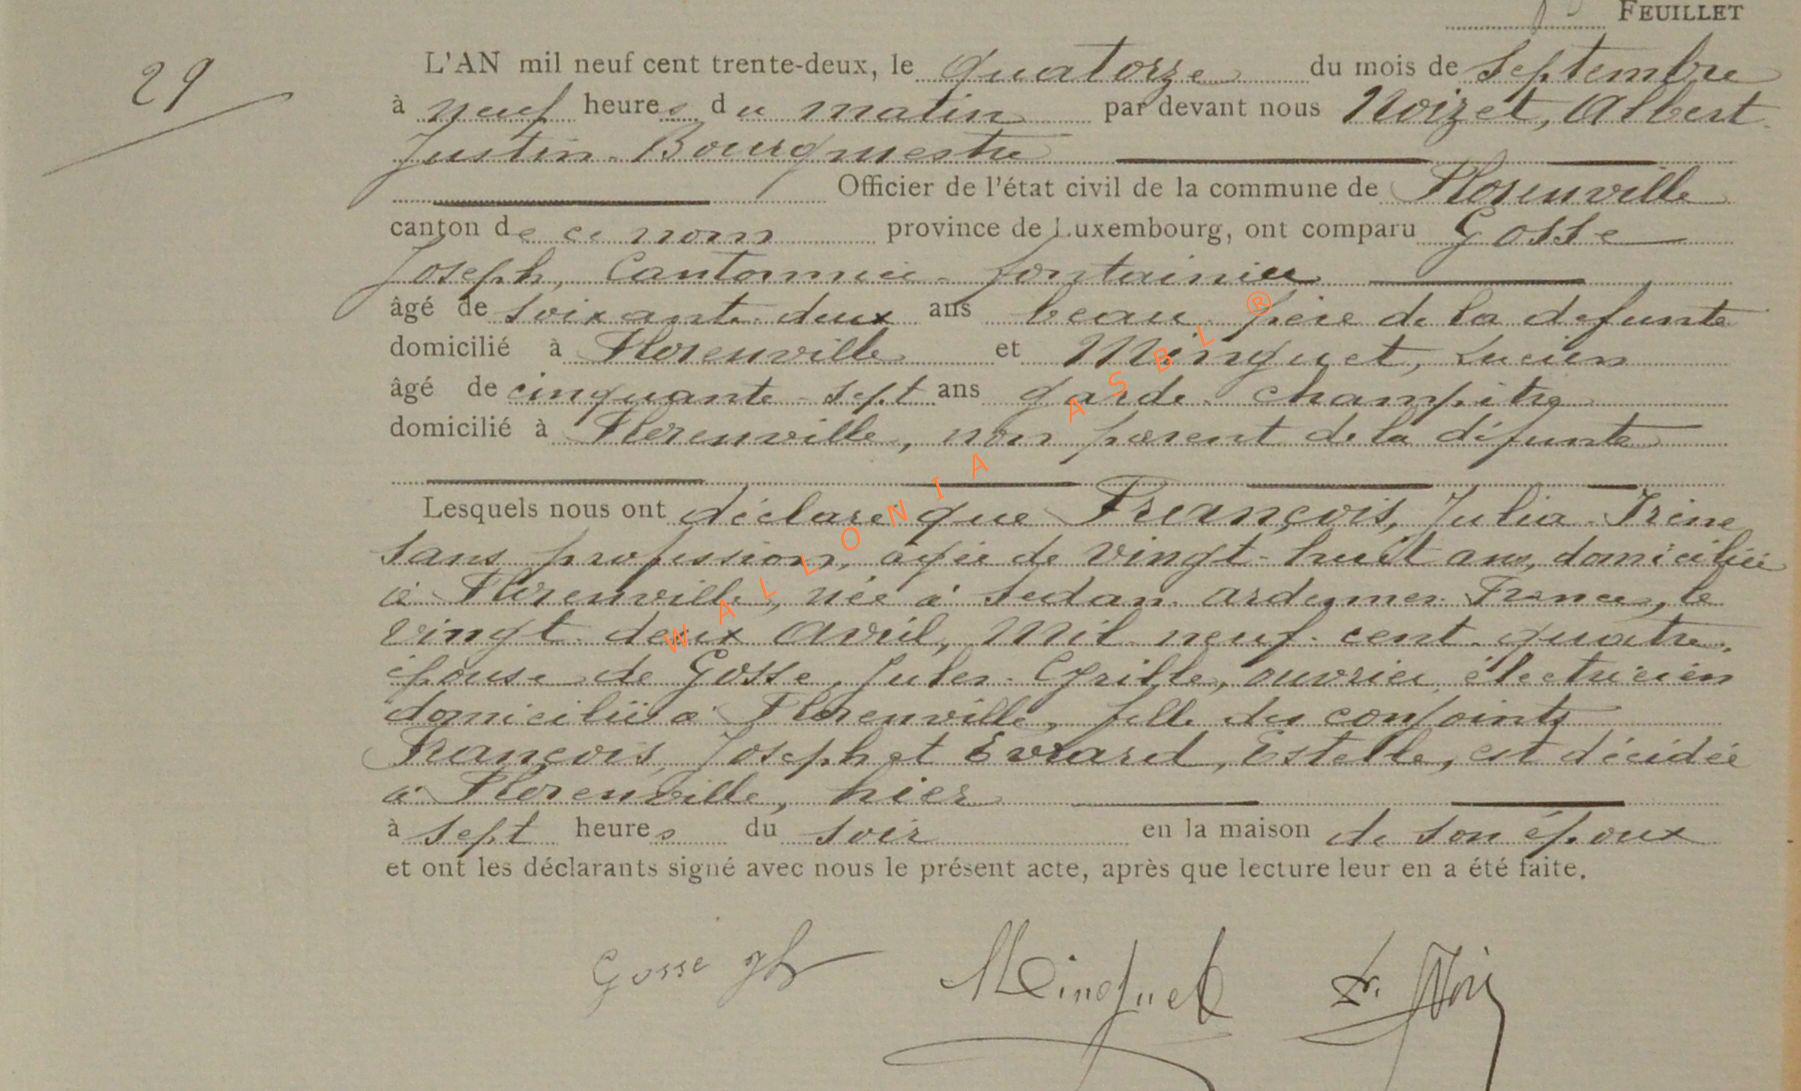 FEUILLET
29
L'AN mil neuf cent trente-deux, le quatorze du mois de Septembre
à neuf heures du matin par devant nous Noizet, Albert
Justin. Bourgmestre
Officier de l'état civil de la commune de Florenville
canton de ce nom province de Luxembourg, ont comparu Gosse
Joseph, Cantonnier-fontainier
âgé de soixante-deux ans beau-père de la defunte
domicilié à Florenville et Minguet, Lucien
âgé de cinquante-sept ans garde-champêtre
domicilié à Florenville, non parent de la défunte
Lesquels nous ont déclaré que François, Julia-Irène
sans profession, agée de vingt-huit ans, domiciliée
à Florenville, née à Sedan-ardennes-France, le
vingt-deux avril, mil-neuf-cent-quatre,
épouse de Gosse, Jules-Cyrille, ouvrier électricien
domicilié à Florenville, fille des conjoints
François, Joseph et Evrard, Estelle, est décédée
à Florenville, hier
à sept heures du soir en la maison de son époux
et ont les déclarants signé avec nous le présent acte, après que lecture leur en a été faite.
Gosse Minguet
WALLONIA ASBL ®